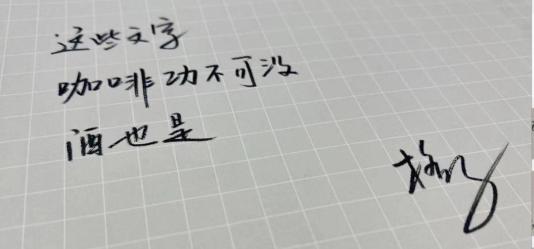 这些文字
咖啡功不可没
酒也是